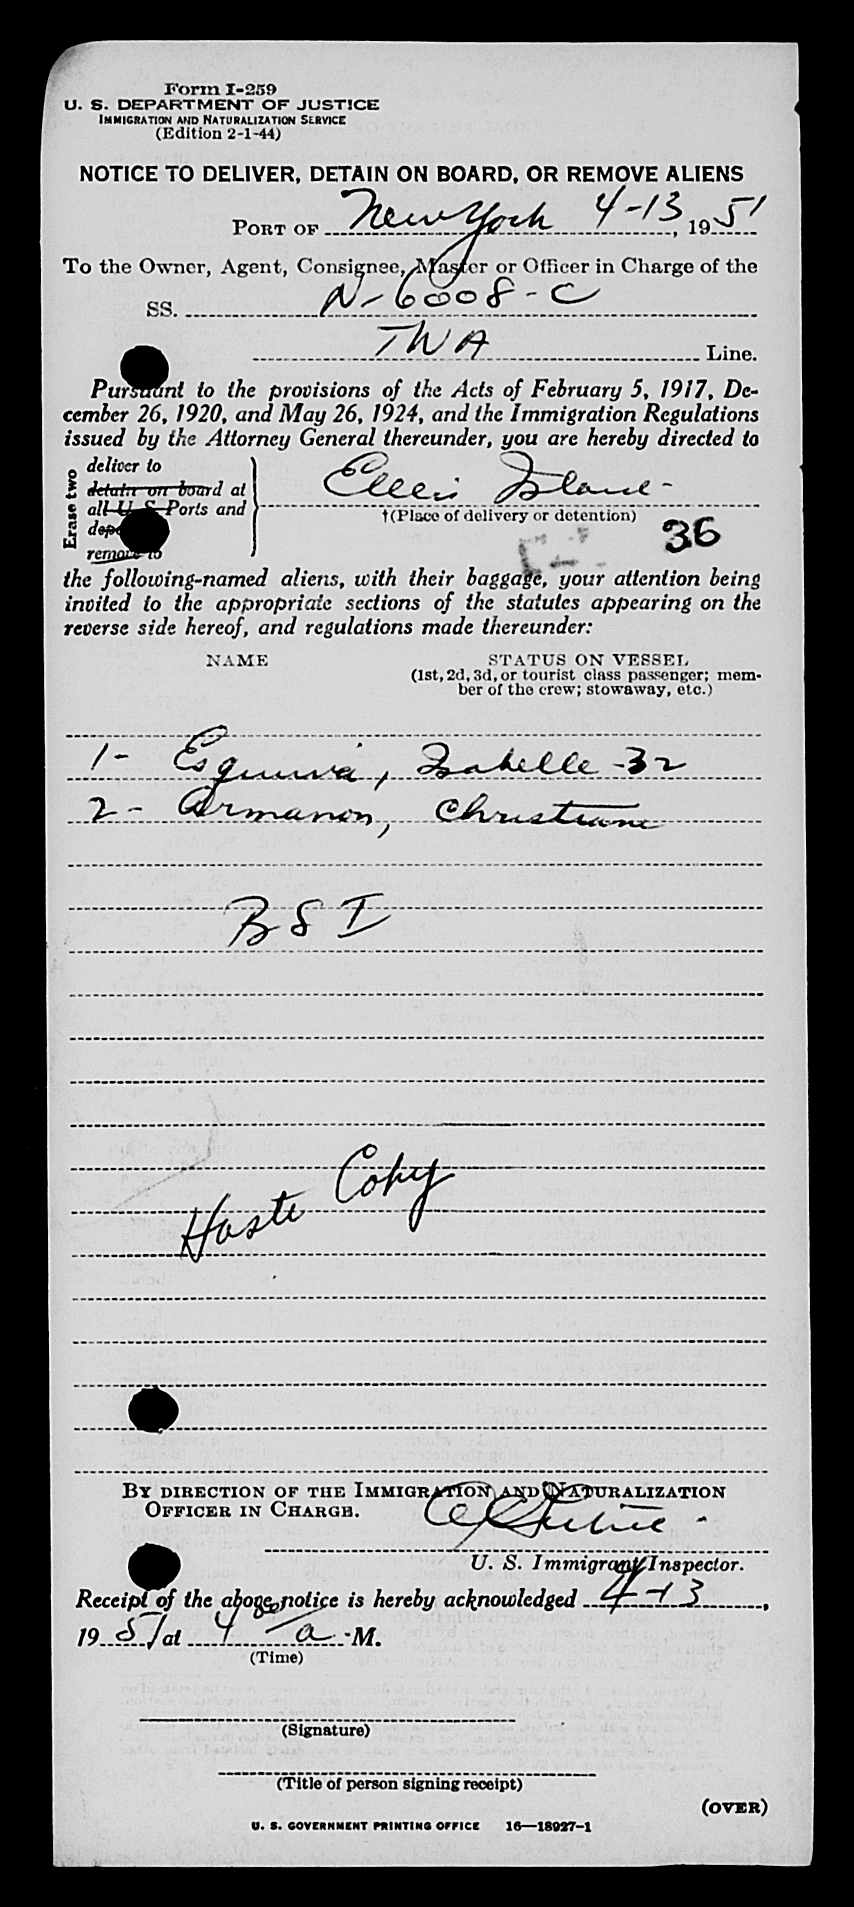 Form I-259
U. S. DEPARTMENT OF JUSTICE
IMMIGRATION AND NATURALIZATION SERVICE
(Edition 2-1-44)
NOTICE TO DELIVER, DETAIN ON BOARD, OR REMOVE ALIENS
PORT OF New York 4-13, 1951
To the Owner, Agent, Consignee, Master or Officer in Charge of the
SS. N-6008-C
TWA Line.
Pursuant to the provisions of the Acts of February 5, 1917, De-
cember 26, 1920, and May 26, 1924, and the Immigration Regulations
issued by the Attorney General thereunder, you are hereby directed to
Erase two
deliver to
detain on board at
all U S Ports and
remove to
Ellis Island-
†(Place of delivery or detention)
36
the following-named aliens, with their baggage, your attention being
invited to the appropriate sections of the statutes appearing on the
reverse side hereof, and regulations made thereunder:
NAME STATUS ON VESSEL
(1st, 2d, 3d, or tourist class passenger; mem-
ber of the crew; stowaway, etc.)
1- Isabelle -32
2- Armanon, Christiane
B S I
Haste Copy
BY DIRECTION OF THE IMMIGRATION AND NATURALIZATION
OFFICER IN CHARGE.
U. S. Immigrant Inspector.
Receipt of the above notice is hereby acknowledged 4-13,
1951 at 4 a M.
(Time)
(Signature)
(Title of person signing receipt)
(OVER)
U. S. GOVERNMENT PRINTING OFFICE 16—18927-1